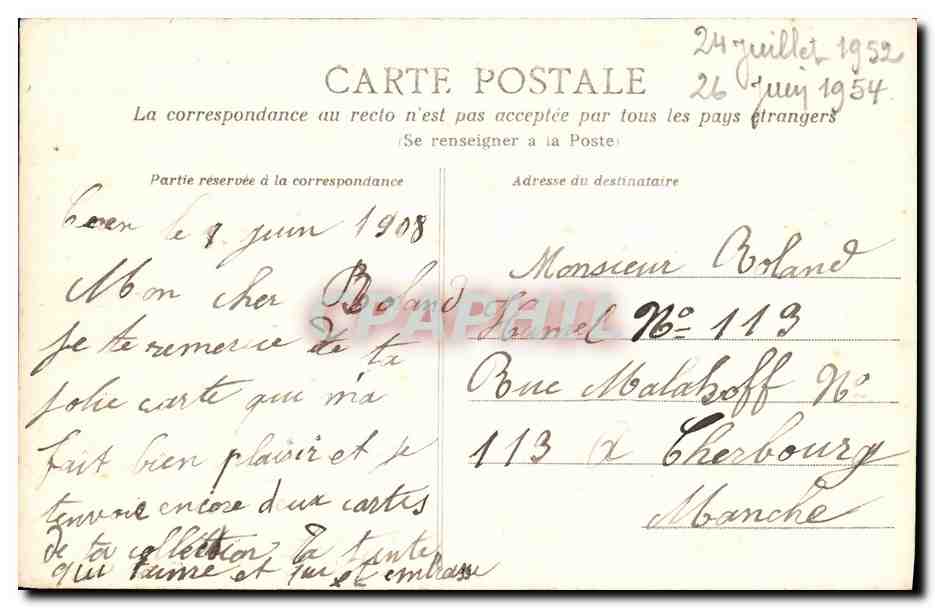 24 juillet 1952
26 juin 1954
CARTE POSTALE
La correspondance au recto n'est pas acceptée par tous les pays étrangers
(Se renseigner à la Poste)
Partie réservée à la correspondance
le 8 juin 1908
Mon cher Roland
je te remercie de ta
jolie carte qui m'a
fait bien plaisir et je
t'envoie encore deux cartes
de ta collection Ta tante
qui t'aime et et embrasse
Adresse du destinataire
Monsieur Roland
Hamel No 113
Rue Malakoff No
113 a Cherbourg
Manche
PAPHIL